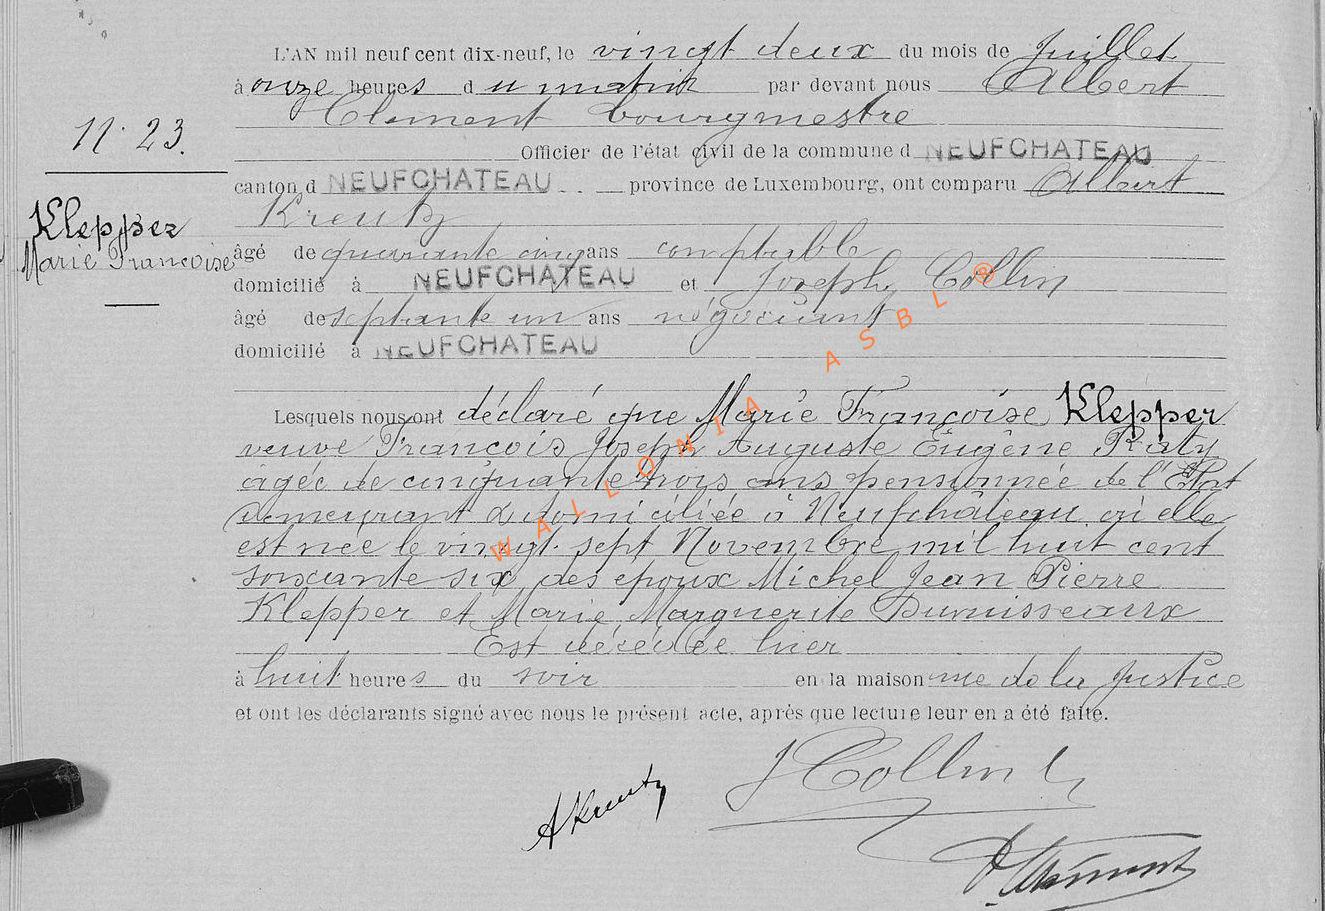 L'AN mil neuf cent dix-neuf, le vingt deux du mois de Juillet
à onze heures du matin par devant nous Albert
Clement bourgmestre
N° 23.
Officier de l'état civil de la commune d NEUFCHATEAU
canton d NEUFCHATEAU province de Luxembourg, ont comparu Albert
Kreutz
Klepper
Marie Francoise
âgé de quarante cinq ans comptable
domicilié à NEUFCHATEAU et Joseph Collin
âgé de septante un ans négociant
domicilié à NEUFCHATEAU
Lesquels nous ont déclaré que Marie Françoise Klepper
veuve Francois Joseph Auguste Eugêne Raty
âgée de cinquante trois ans pensionnée de l'Etat
demeurant & domiciliée à Neufchâteau où elle
est née le vingt sept Novembre mil huit cent
soixante six des epoux Michel Jean Pierre
Klepper et Marie Marguerite Dumisseaux
Est décédée hier
à huit heures du soir en la maison rue de la Justice
et ont les déclarants signé avec nous le présent acte, après que lecture leur en a été faite.
J Collin
A Kreutz
Clément
WALLONIA ASBL ®